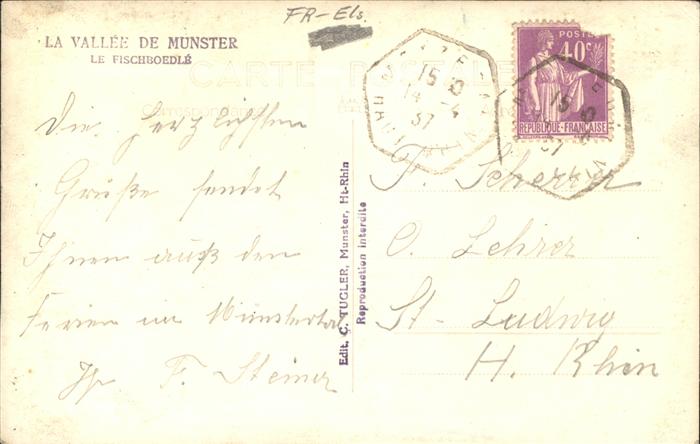 FR-Els.
LA VALLÉE DE MUNSTER
LE FISCHBOEDLÉ
CARTE POSTALE
Correspondance
Die herzlichsten
Grüße sendet
Ihnen auß den
Ferien im Münstertal
Ihr F. Steiner
Edit. C. TUGLER, Munster, Ht-Rhin
Reproduction interdite
POSTES
40c
RÉPUBLIQUE-FRANÇAISE
15
14 -4
37
HAUT RHIN
15
37
F. Scherrer
O. Lehrer
St-Ludwig
H. Rhin